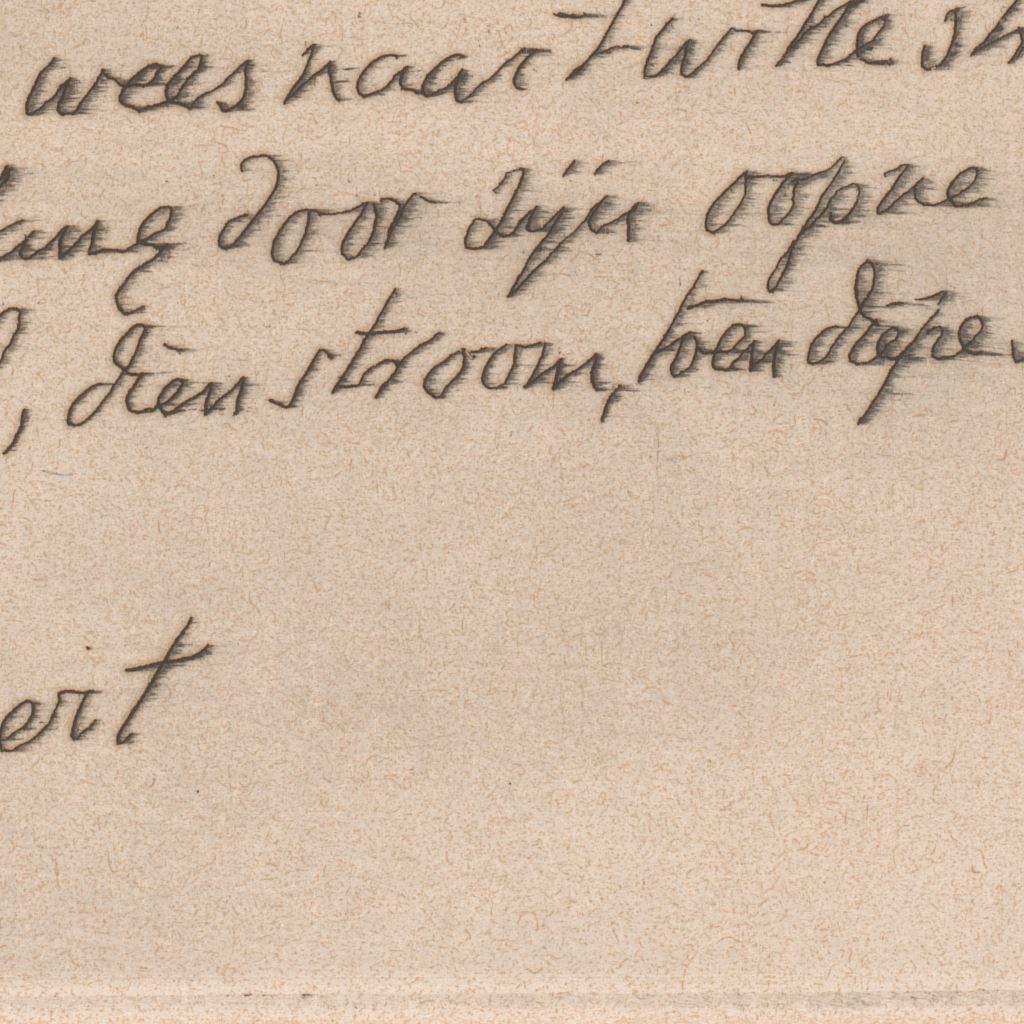 wees naar
door zijn oopne
, dien stroom, toen diepe
ert